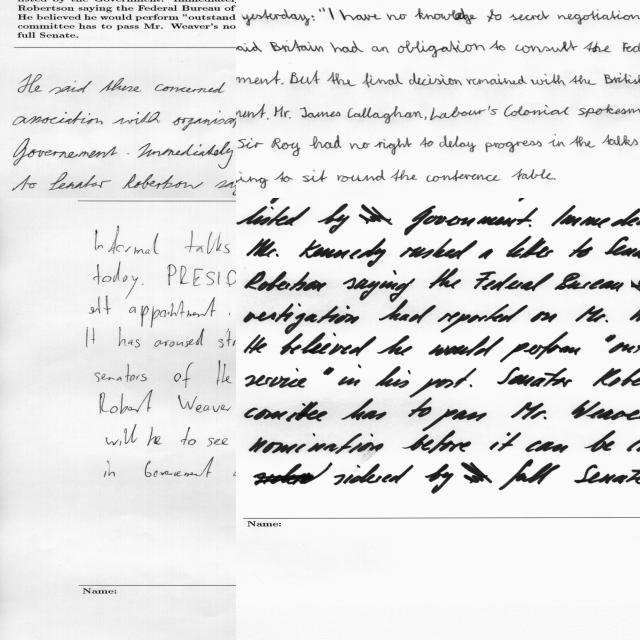 listed by the Government. Immediately
Robertson saying the Federal Bureau of
He believed he would perform "outstand
committee has to pass Mr. Weaver's no
full Senate.
He said these concerned
association with organisa
Governement. Immediately
to Senator Robertson sa
yesterday: "I have no knowledge to secret negotiation
aid Britain had an obligation to consult the Fed
ment. But the final decision remained with the British
ment. Mr. James Callaghan, Labour's Colonial spokesm
Sir Roy had no right to delay progress in the talks
ing to sit round the conference table.
Informal talks
today. PRESID
elt appointment.
It has aroused st
senators of the
Robert Weaver
will be to see
in Goverment
listed by Government. Immedi
Mr. Kennedy rushed a letter to Sena
Robertson saying the Federal Bureau
vestigation had reported on Mr. W
He believed he would perform "out
service" in his post. Senator Robe
comittee has to pass Mr. Weave
nomination before it can be
sidered by full Senate
Name:
Name: